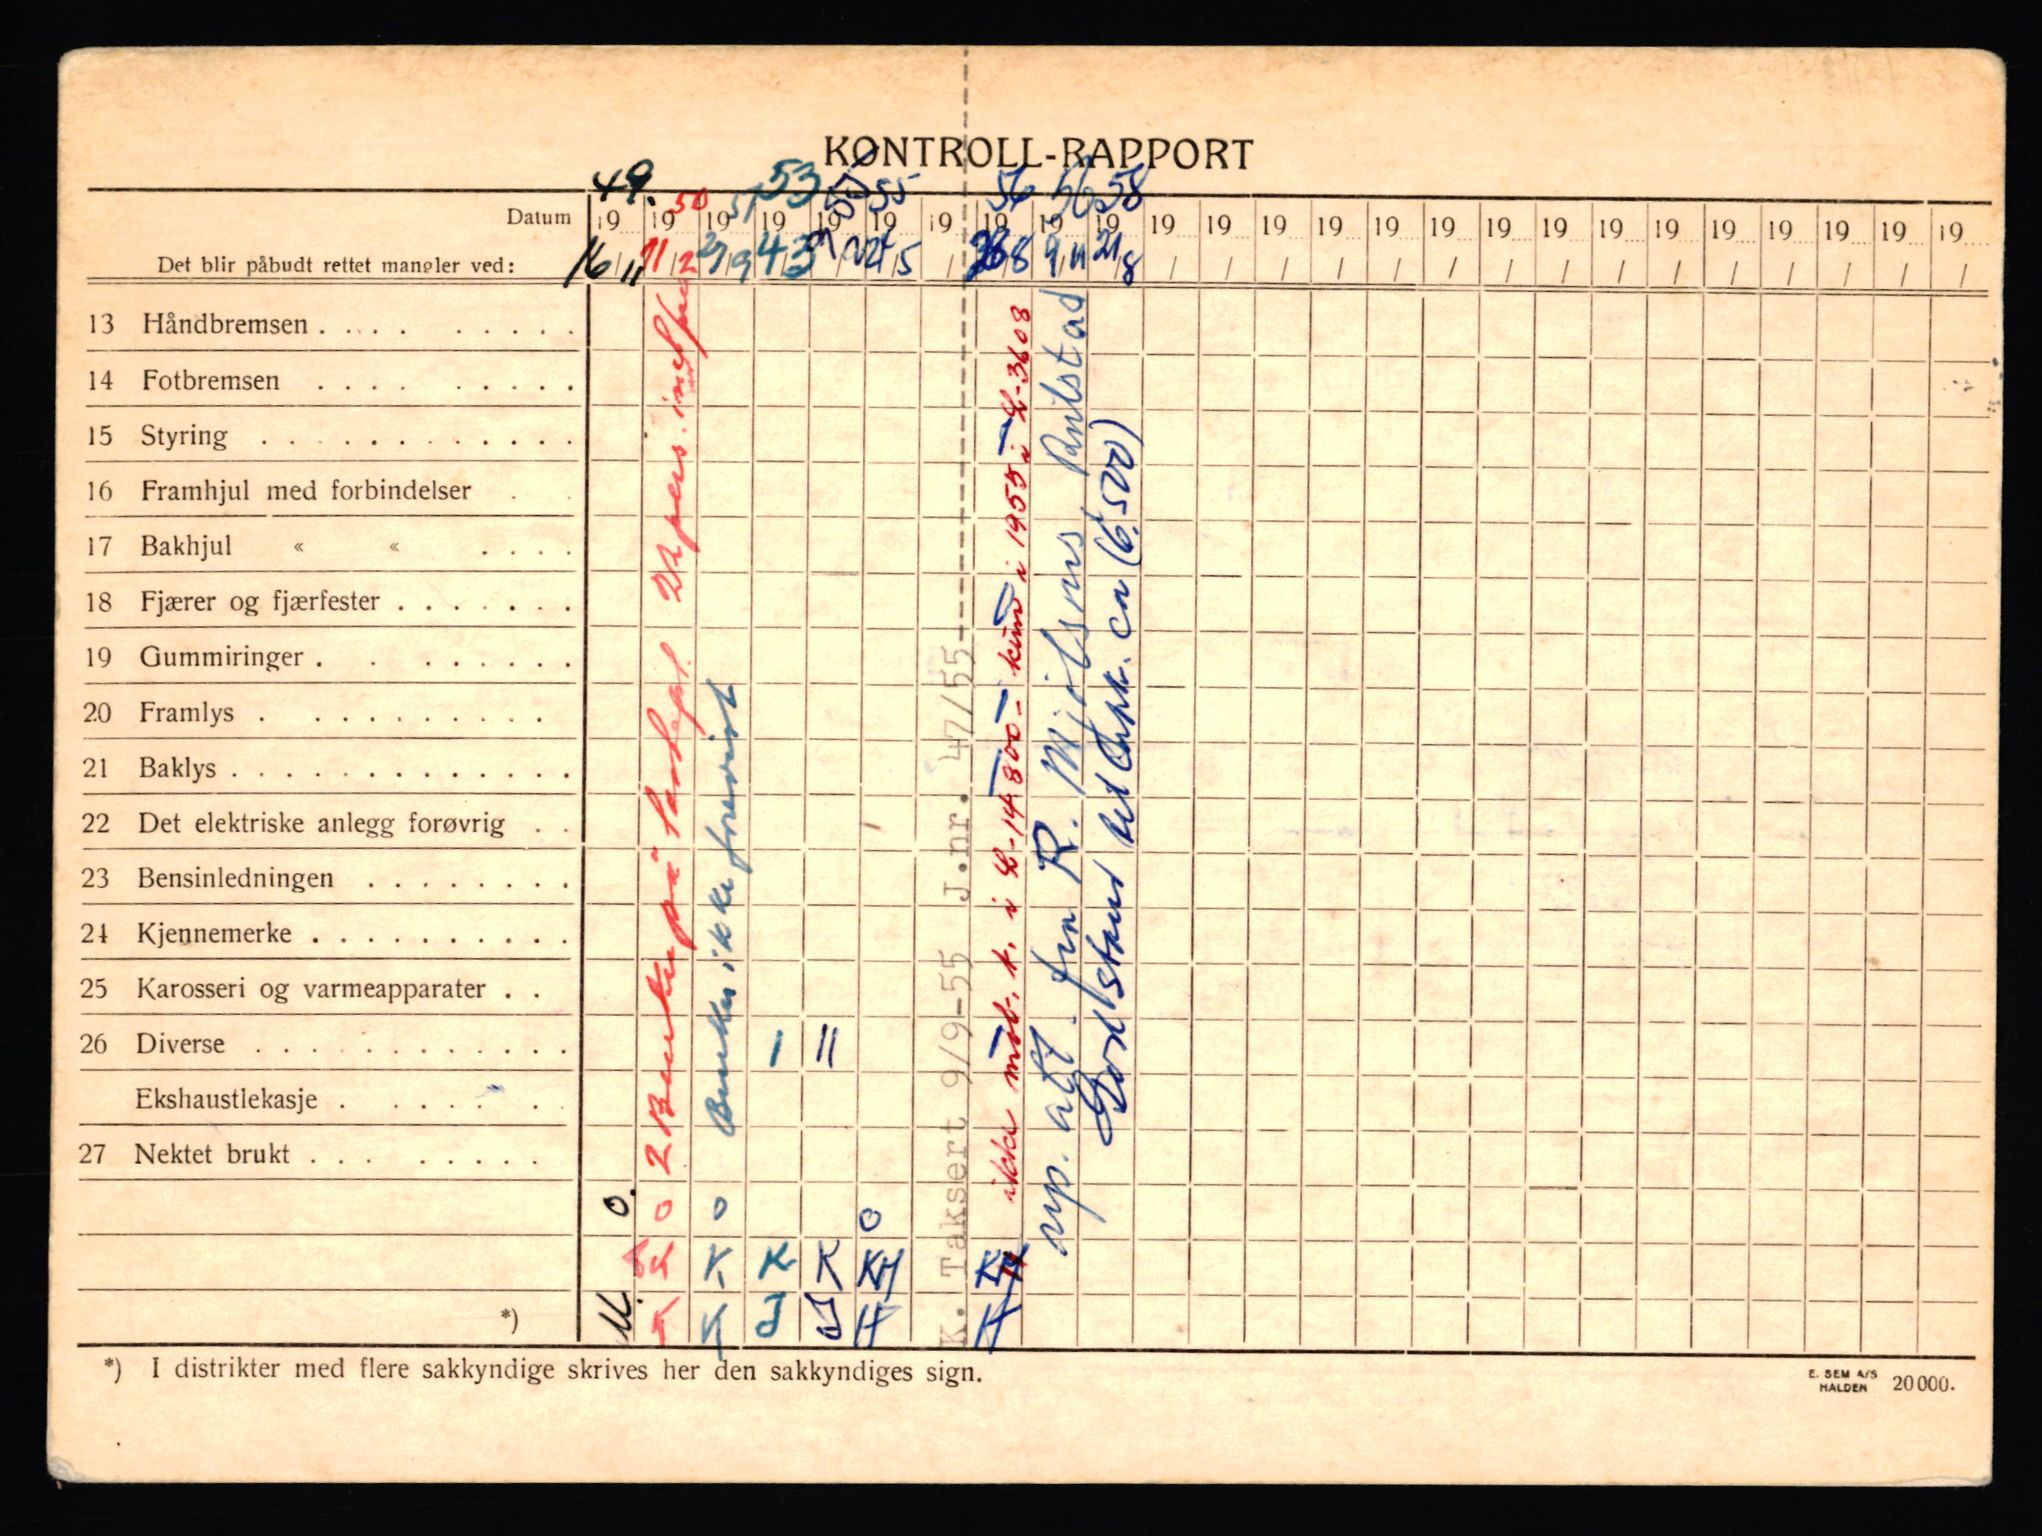 KONTROLL-RAPPORT
49. 50 51 53 55 55 56 56 58
Datum 19 19 19 19 19 19 19 19 19 19 19 19 19 19 19 19 19 19 19 19 19 19 19 19 19
Det blir påbudt rettet mangler ved: 16/11 11/2 27/9 4/3 24/5 28/8 9/11 21/8
13 Håndbremsen
14 Fotbremsen
15 Styring
16 Framhjul med forbindelser
17 Bakhjul « «
18 Fjærer og fjærfester
19 Gummiringer
20 Framlys
21 Baklys
22 Det elektriske anlegg forøvrig
23 Bensinledningen
24 Kjennemerke
25 Karosseri og varmeapparater
26 Diverse I II
Ekshaustlekasje
27 Nektet brukt
2 Benker på
Benker ikke forevist
K. Taksert 9/9-55 J.nr. 47/55
ikke mot. k. i L-14800 - kun i 1955 i L-3608
rep. att. fra R. Mjølsnes
ca (6.500)
O. O O O
K K K KH KH
K K J J H H
*)
*) I distrikter med flere sakkyndige skrives her den sakkyndiges sign.
E. SEM A/S
HALDEN 20 000.